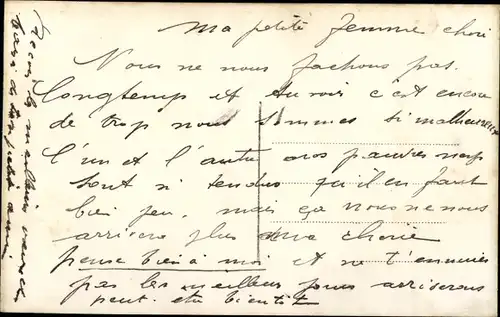 ma petite femme cheri
Nous ne nous fachons pas
longtemp et un soir c'est encore
de trop nous sommes si malheureux
l'un et l'autre nos pauvres nerfs
sont si tendus qu'il en faut
bien peu, mais ça nous ne nous
arrivera plus ma cherie
pense bien à moi et ne t'ennuies
pas les meilleur jours arriverons
peut. etre bientôt
Recois les meilleurs
baisers de ton petit ami